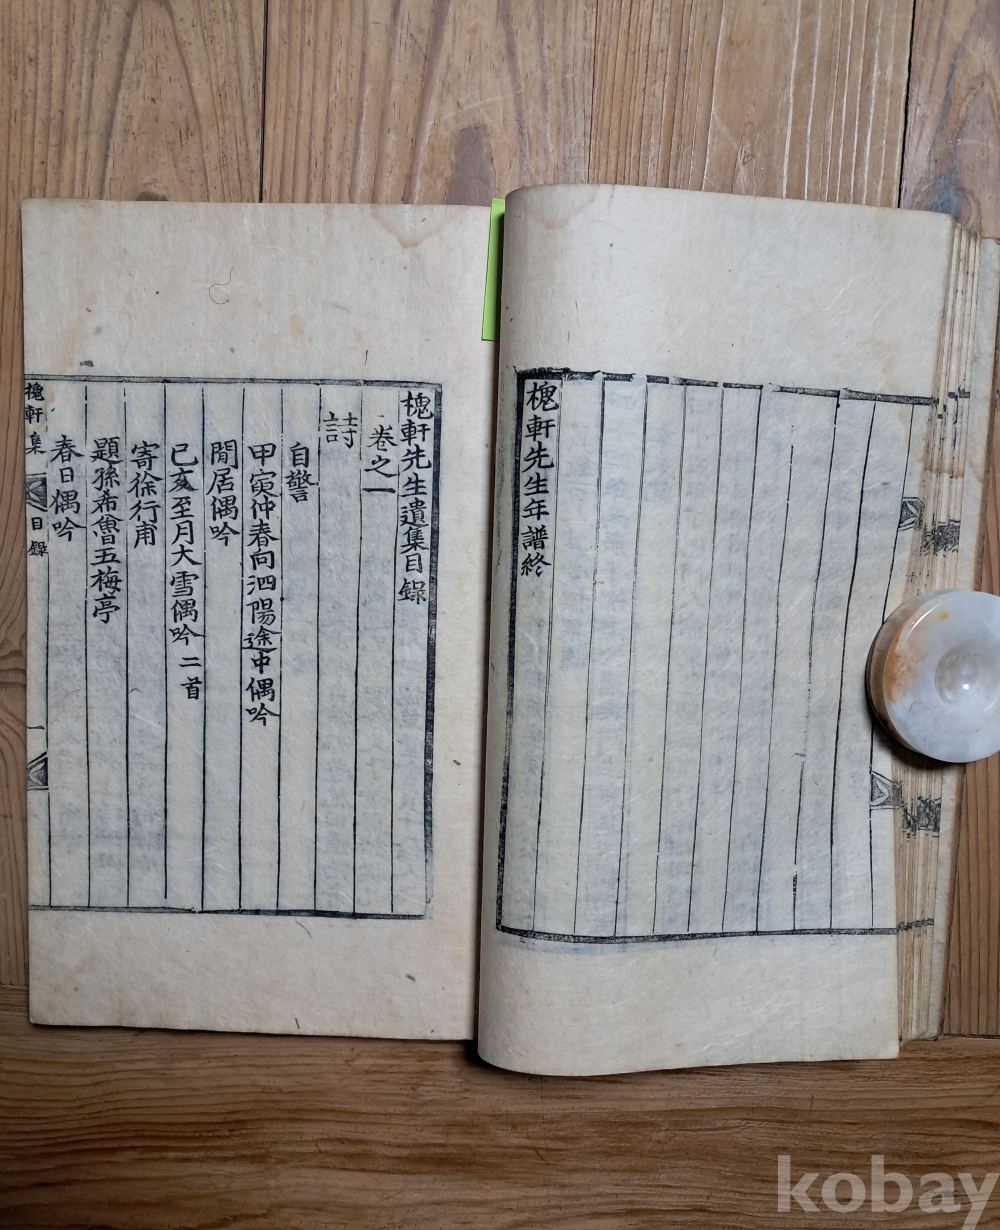 槐軒先生年譜終
槐軒先生遺集目錄
卷之一
詩
自警
甲寅仲春向泗陽途中偶吟
閒居偶吟
己亥至月大雪偶吟 二首
寄徐行甫
題孫希魯五梅亭
春日偶吟
槐軒集 目錄 一
kobay